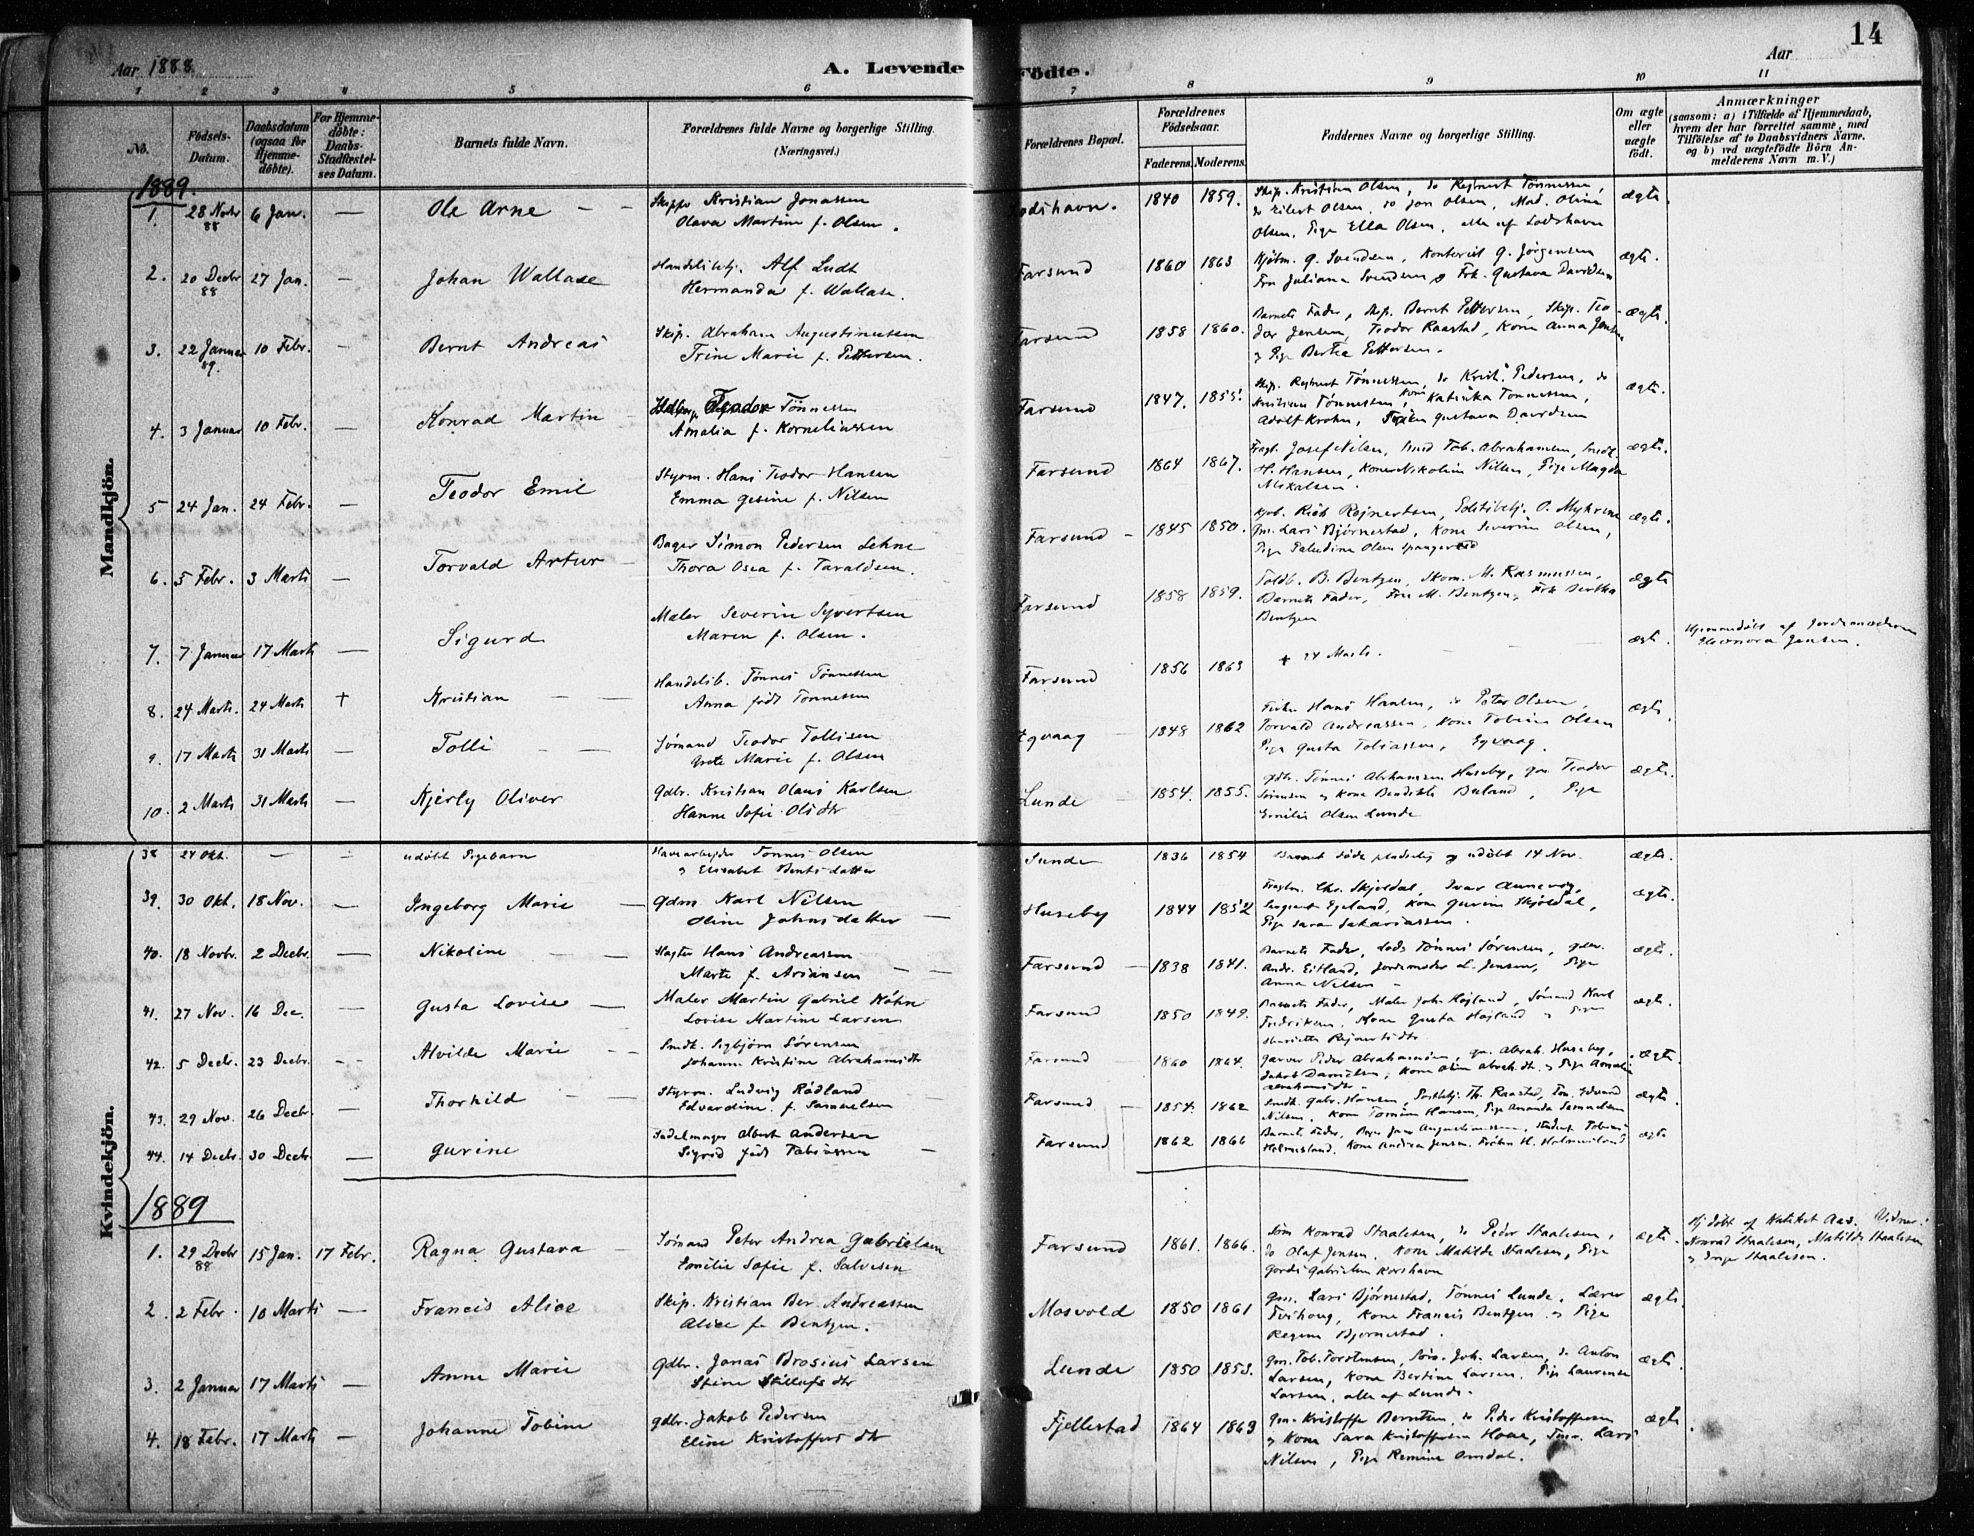 14
Aar 1888
A. Levende Födte.
Aar
1 2 3 4 5 6 7 8 9 10 11
Nò.
Födsels-Datum.
Daabsdatum (ogsaa for Hjemmedöbte).
For Hjemmedöbte: Daabs-Stadfæstelses Datum.
Barnets fulde Navn.
Forældrenes fulde Navne og borgerlige Stilling. (Næringsvei.)
Forældrenes Bopæl.
Forældrenes Födselsaar.
Faderens. Moderens.
Faddernes Navne og borgerlige Stilling.
Om ægte eller uægte födt.
Anmærkninger
(saasom: a) i Tilfælde af Hjemmedaab, hvem der har forrettet samme, med Tilföielse af to Daabsvidners Navne, og b) ved uægtefödte Börn Anmelderens Navn m. V.)
Mandkjön.
1889.
1. 28 Novbr 88 6 Jan. — Ole Arne — — Skipper Kristian Jonassen
Olava Martine f. Olsen.
Lodshavn. 1840 1859. Skip. Kristian Olsen, do Rejnert Tönnessen, ægte.
do Eilert Olsen, do Jon Olsen, Mad. Olina
Olsen, Pige Ella Olsen, alle af Lodshavn
2. 20 Decbr 88 27 Jan. — Johan Wallase Handelsbetj. Alf Lundt
Hermanda f. Wallase.
Farsund 1860 1863 Kjøbm. G. Svendsen, Kontorist G. Jörgensen ægte.
Fru Juliana Svendsen & Frk. Gustava Davidsen
3. 22 Januar 89. 10 Febr. — Bernt Andreas Skip. Abraham Augustinussen
Trine Marie f. Pettersen.
Farsund 1858 1860. Barnets Fader, Skip. Bernt Pettersen, Skip. Teo- ægte.
dor Jensen, Teodor Raastad, Kone Anna Jensen
& Pige Bertha Pettersen.
4. 3 Januar 10 Febr. — Konrad Martin — Teodor Tönnessen
Amalia f. Korneliussen
Farsund 1847. 1855. Skip. Rejnert Tönnessen, do Krist. Pedersen, do ægte.
Kristian Tönnessen, Kone Katinka Tönnessen,
Adolf Krohn, Frøken Gustava Davidsen
5 24 Jan. 24 Febr. — Teodor Emil Styrm. Hans Teodor Hansen
Emma Gesine f. Nilsen
Farsund 1864 1867. Josef Nilsen, Smed Tob. Abrahamsen, Smedl. ægte.
H. Hansen, Kone Nikoline Nilsen, Pige Magda
6. 5 Febr. 3 Marts — Torvald Artur — Bager Simon Pedersen Lehne
Thora Osea f. Taraldsen.
Farsund — 1845 1850. Rejnertsen, O. Myhrene ægte.
Gm. Lars Bjørnestad, Kone Severine Olsen,
Pige Paludine Olsen Spangereid
7. 7 Januar 17 Marts — Sigurd Maler Severin Syvertsen
Maren f. Olsen.
Farsund 1858 1859. Toldb. B. Bentzen, Skom. M. Rasmussen, ægte
Barnets Fader, Fru M. Bentzen, Frk Bertha
Bentzen
8. 24 Marts. 24 Marts † Kristian — — Handelsb. Tönnes Tönnessen
Anna født Tönnessen
Farsund 1856 1863 † 24 Marts. ægte. Hjemmedöbt af Jordemoderen
Eleonora Jensen.
9. 17 Marts 31 Marts — Tolli — — Sømand Teodor Tollisen
Grete Marie f. Olsen
Egvaag — 1848 1862 Hans Hansen, do Peter Olsen, ægte.
Torvald Andreassen, Kone Tobine Olsen
Pige Gusta Tobiassen, Egvaag.
10. 2 Marts 31 Marts — Kjerly Oliver Gdbr. Kristian Olaus Karlsen
Hanne Sofie Olsdtr
Lunde — 1854. 1855. Gdbr. Tønnes Abrahamsen Huseby, Gm. Teodor ægte.
Sørensen & Kone Bendikte Buland, Pige
Emilie Olsen Lunde
Kvindekjön.
38 24 Okt. — — udøbt Pigebarn Havearbejder Tönnes Olsen
& Elisabet Berntsdatter
Sunde 1836 1854 Barnet døde pludselig og udøbt 14 Nov. ægte.
39. 30 Okt. 18 Nov. — Ingeborg Marie — Gdm Karl Nilsen
Oline Johnsdatter —
Huseby 1844 1852 Chr. Skjoldal, Ivar Aunevog, ægte.
Sergeant Egeland, Kone Gurine Skjoldal,
Pige Sara Sakariassen.
40. 18 Novbr. 2 Decbr. — Nikoline Hans Andreassen
Marte f. Ariansen — —
Farsund — 1838 1841. Barnets Fader, Lods Tönnes Sørensen, ægte.
Andr. Eitland, Jordemoder L. Jensen, Pige
Anna Nilsen
41. 27 Nov. 16 Dec. — Gusta Lovise — Maler Martin Gabriel Köhn
Lovise Martine Larsen
Farsund 1850 1849. Barnets Fader, Maler Joh. Højland, Sömand Karl ægte.
Fredriksen, Kone Gusta Højland & Pige
Henriette Rejnertsdtr
42. 5 Decbr. 23 Decbr. — Alvilde Marie — — Smdk. Sigbjørn Sørensen
Johanne Kristine Abrahamsdtr
Farsund — 1860 1864. Garver Peder Abrahamsen, Gm. Abrah. Huseby, ægte.
Jakob Danielsen, Kone Oline Abrah.dtr. & Pige Amalie
Abrahamsdtr —
43. 29 Nov. 26 Decbr — Thorhild — Styrm. Ludvig Rödland
Edvardine f. Samuelsen
Farsund — 1854. 1862 Smdk. Gabr. Hansen, Th. Raastad, Edvard ægte.
Nilsen, Kone Tomine Hansen, Pige Amanda Samuelsen
44. 14 Decbr. 30 Decbr. — Gurine Sadelmager Albert Andersen
Sigrid født Tobiassen —
Farsund 1862 1866 Barnets Fader, Jens Augustinussen, Student Tobias ægte
Holmesland, Kone Andrea Jensen, Frøken H. Holmesland
1889
1. 29 Decbr 88 15 Jan. 17 Febr. Ragna Gustava — Sømand Peter Andrea Gabrielsen
Emilie Sofie f. Salvesen
Farsund 1861. 1866. Søm Konrad Staalesen, do Peder Staalesen, ægte.
do Olaf Jensen, Kone Matilde Staalesen, Pige
Gordi Gabrielsen Korshavn
Hj.döbt af Aas. Vidner:
Konrad Staalesen, Matilde Staalesen
& Staalesen.
2. 2 Febr. 10 Marts — Francis Alice Skip. Kristian Ber. Andreassen
Alice f. Bentzen.
Mosvold 1850 1861 Gm. Lars Bjørnestad, Tönnes Lunde, Lærer ægte.
Tvihoug, Kone Francis Bentzen & Pige
Regine Bjørnestad.
3. 2 Januar 17 Marts — Anne Marie Gdbr. Jonas Brosius Larsen
Stine Stillufsdtr
Lunde 1850 1853. Gm. Tob. Torstensen, Søm. Joh. Larsen, do Anton ægte.
Larsen, Kone Bertine Larsen, Pige Laurense
Larsen, alle af Lunde.
4. 18 Febr. 17 Marts — Johanne Tobine Gdbr. Jakob Pedersen
Eline Kristoffersdtr
Fjellestad 1864 1863 Gm. Kristoffer Berntsen, do Peder Kristoffersen ægte.
& Kone Sara Kristoffersen Hoae, Lars
Nilsen, Pige Remine Omdal.